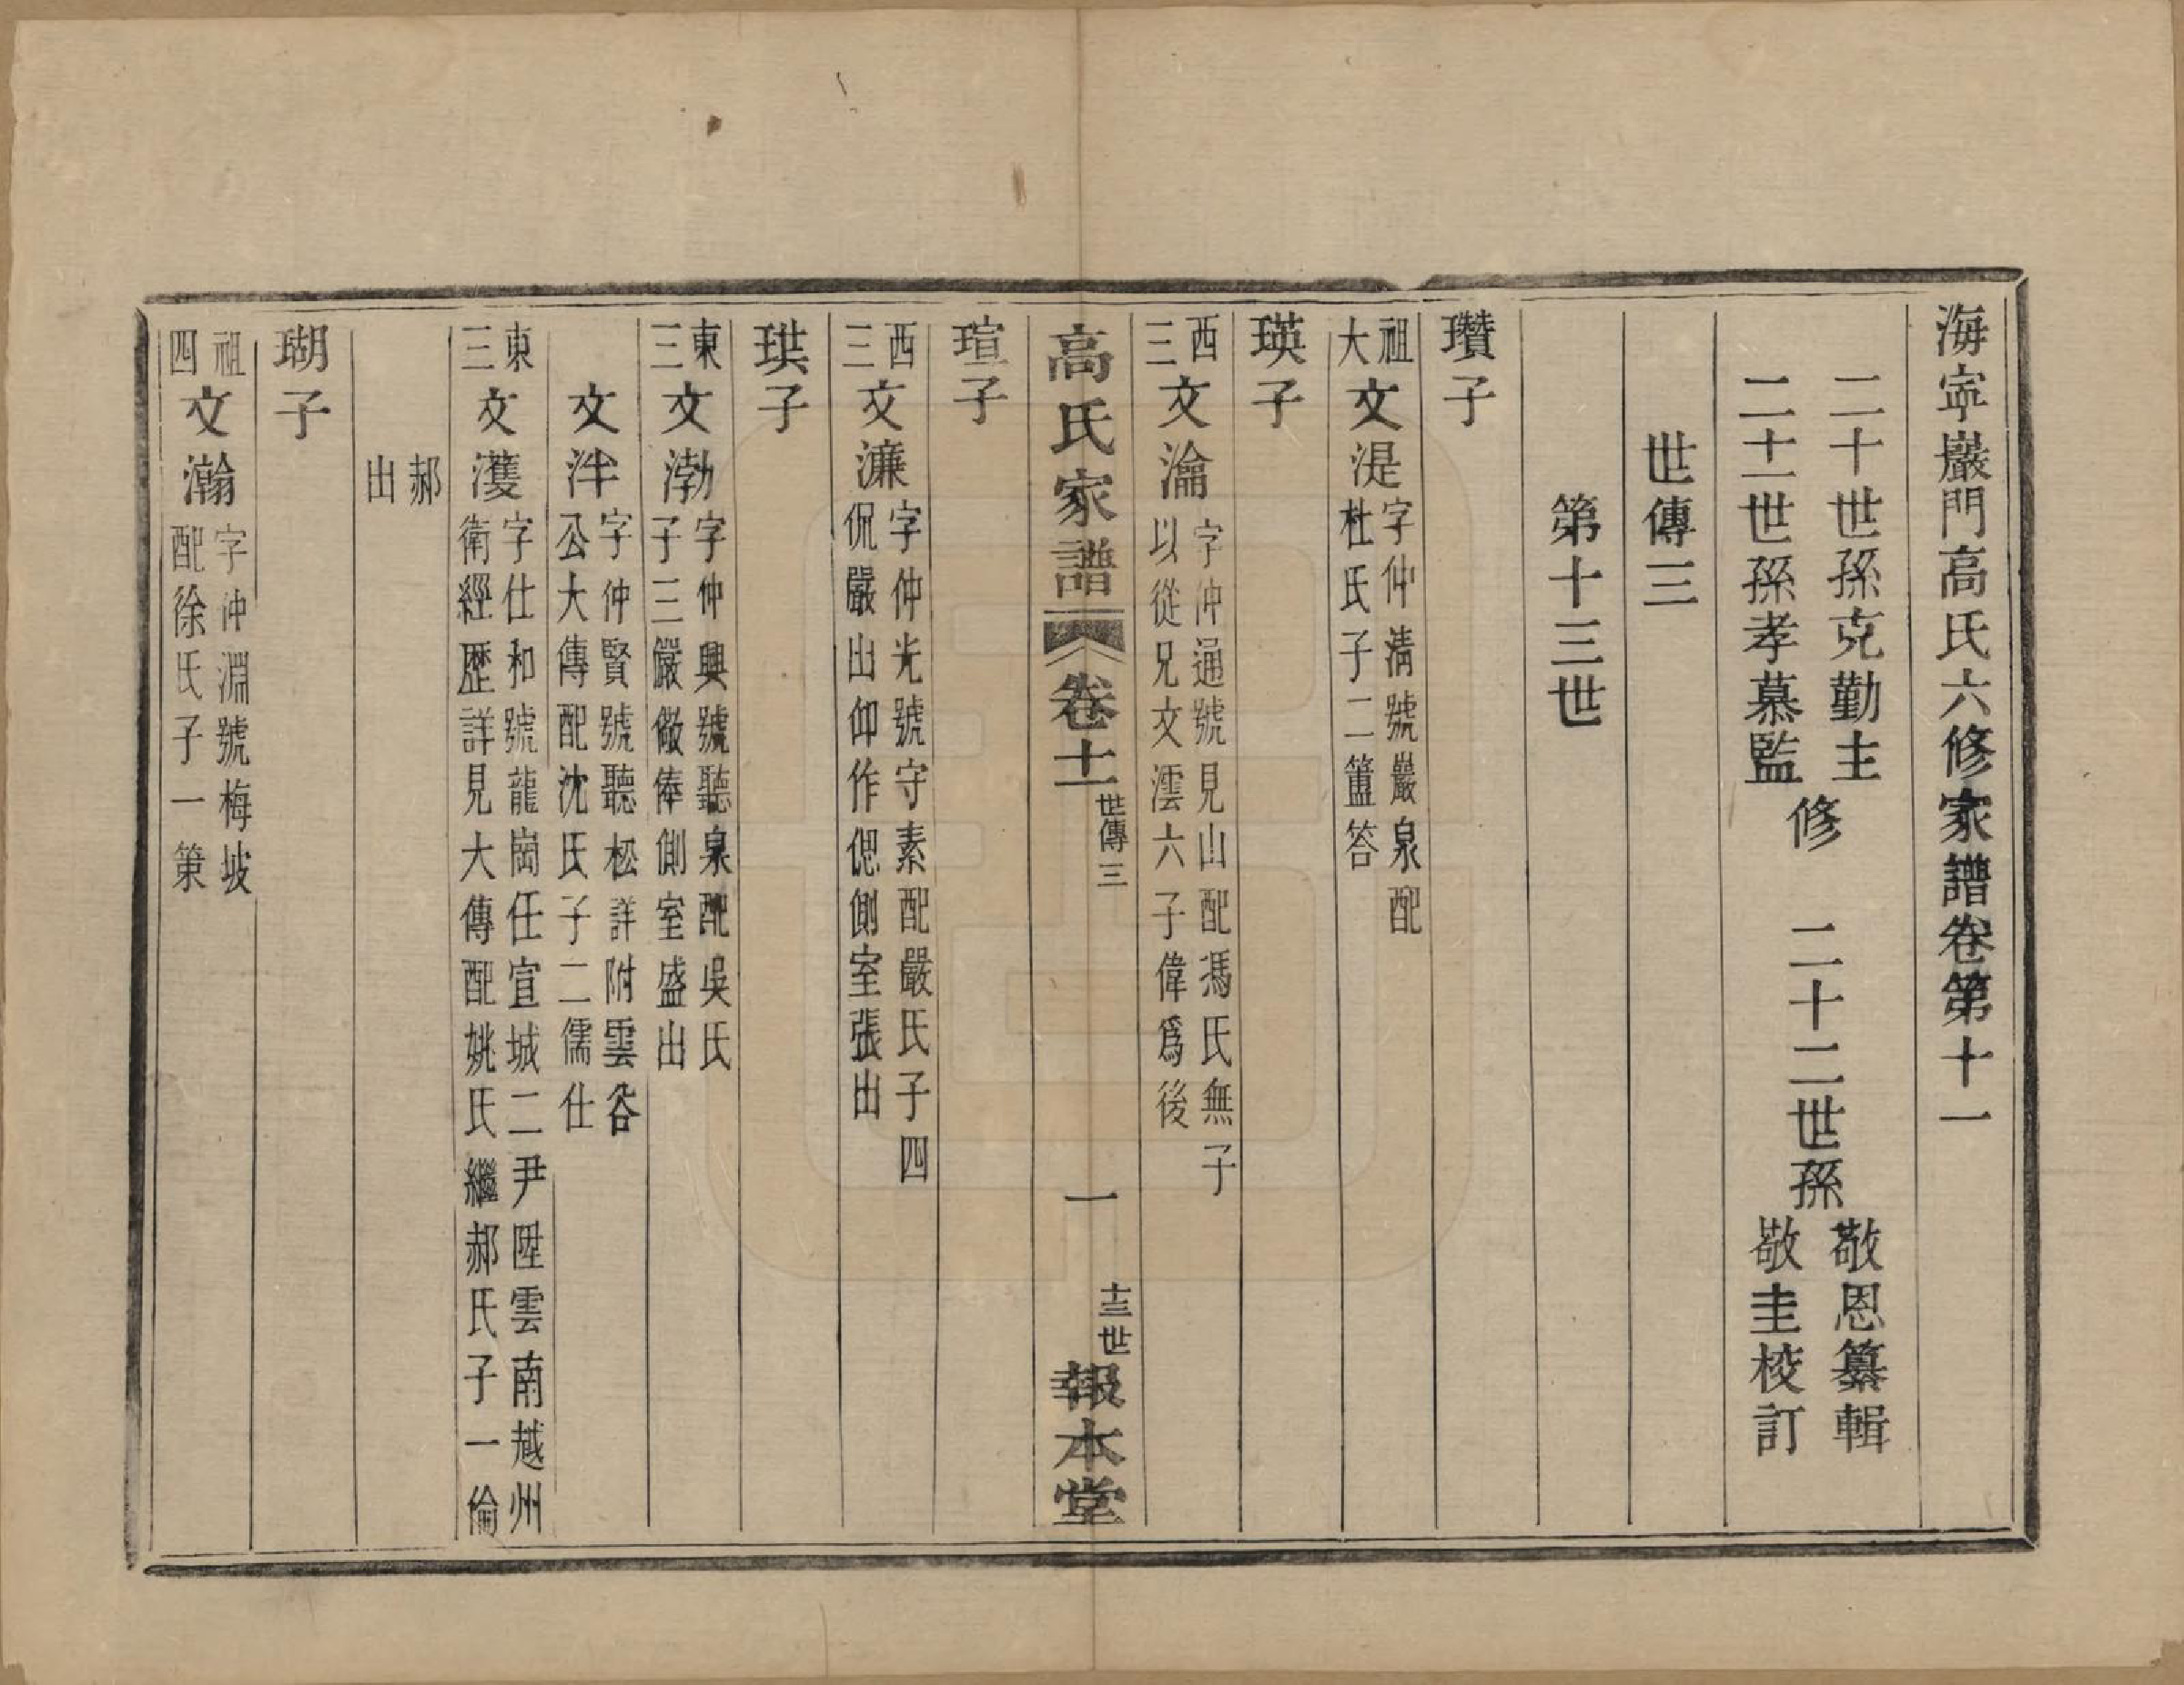 海寧巖門高氏六修家譜卷第十一
二十世孫克勤主
二十一世孫孝慕監
修
二十二世孫
敬恩纂輯
敬圭校訂
世傳三
第十三世
瓚子
祖大 文湜 字仲淸號巖泉配
杜氏子二簠答
瑛子
西三 文瀹 字沖通號見山配馮氏無子
以從兄文澐六子偉爲後
高氏家譜 卷十一 世傳三 一 十三世 報本堂
瑄子
西三 文濂 字仲光號守素配嚴氏子四
侃嚴出仰作偲側室張出
珙子
東三 文渤 字仲興號聽泉配吳氏
子三儼儆俸側室盛出
文泮 字仲賢號聽松詳附雲谷
公大傳配沈氏子二儒仕
東三 文濩 字仕和號龍崗任宣城二尹陞雲南越州
衛經歷詳見大傳配姚氏繼郝氏子一倫
郝
出
瑚子
祖四 文瀚 字沖淵號梅坡
配徐氏子一策